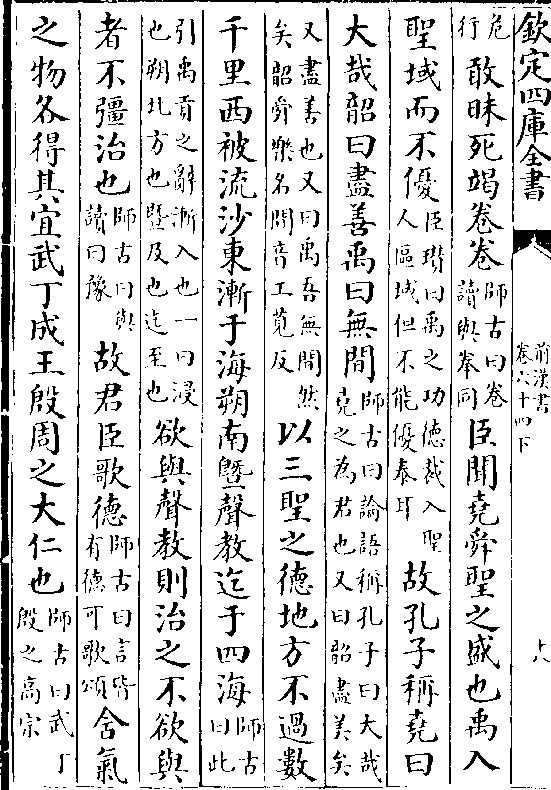 欽定四庫全書
前漢書
卷六十四下
十八
危行敢昧死竭卷卷師古曰卷讀與拳同臣聞堯舜聖之盛也禹入
聖域而不優臣瓚曰禹之功德裁入聖人區域但不能優泰耳故孔子稱堯曰
大哉韶曰盡善禹曰無間師古曰論語稱孔子曰大哉堯之為君也又曰韶盡美矣
又盡善也又曰禹吾無間然矣韶舜樂名間音工莧反以三聖之德地方不過數
千里西被流沙東漸于海朔南曁聲教迄于四海師古曰此
引禹貢之辭漸入也一曰浸也朔北方也曁及也迄至也欲與聲教則治之不欲與
者不彊治也師古曰與讀曰豫故君臣歌德師古曰言皆有德可歌頌含氣
之物各得其宜武丁成王殷周之大仁也師古曰武丁殷之高宗